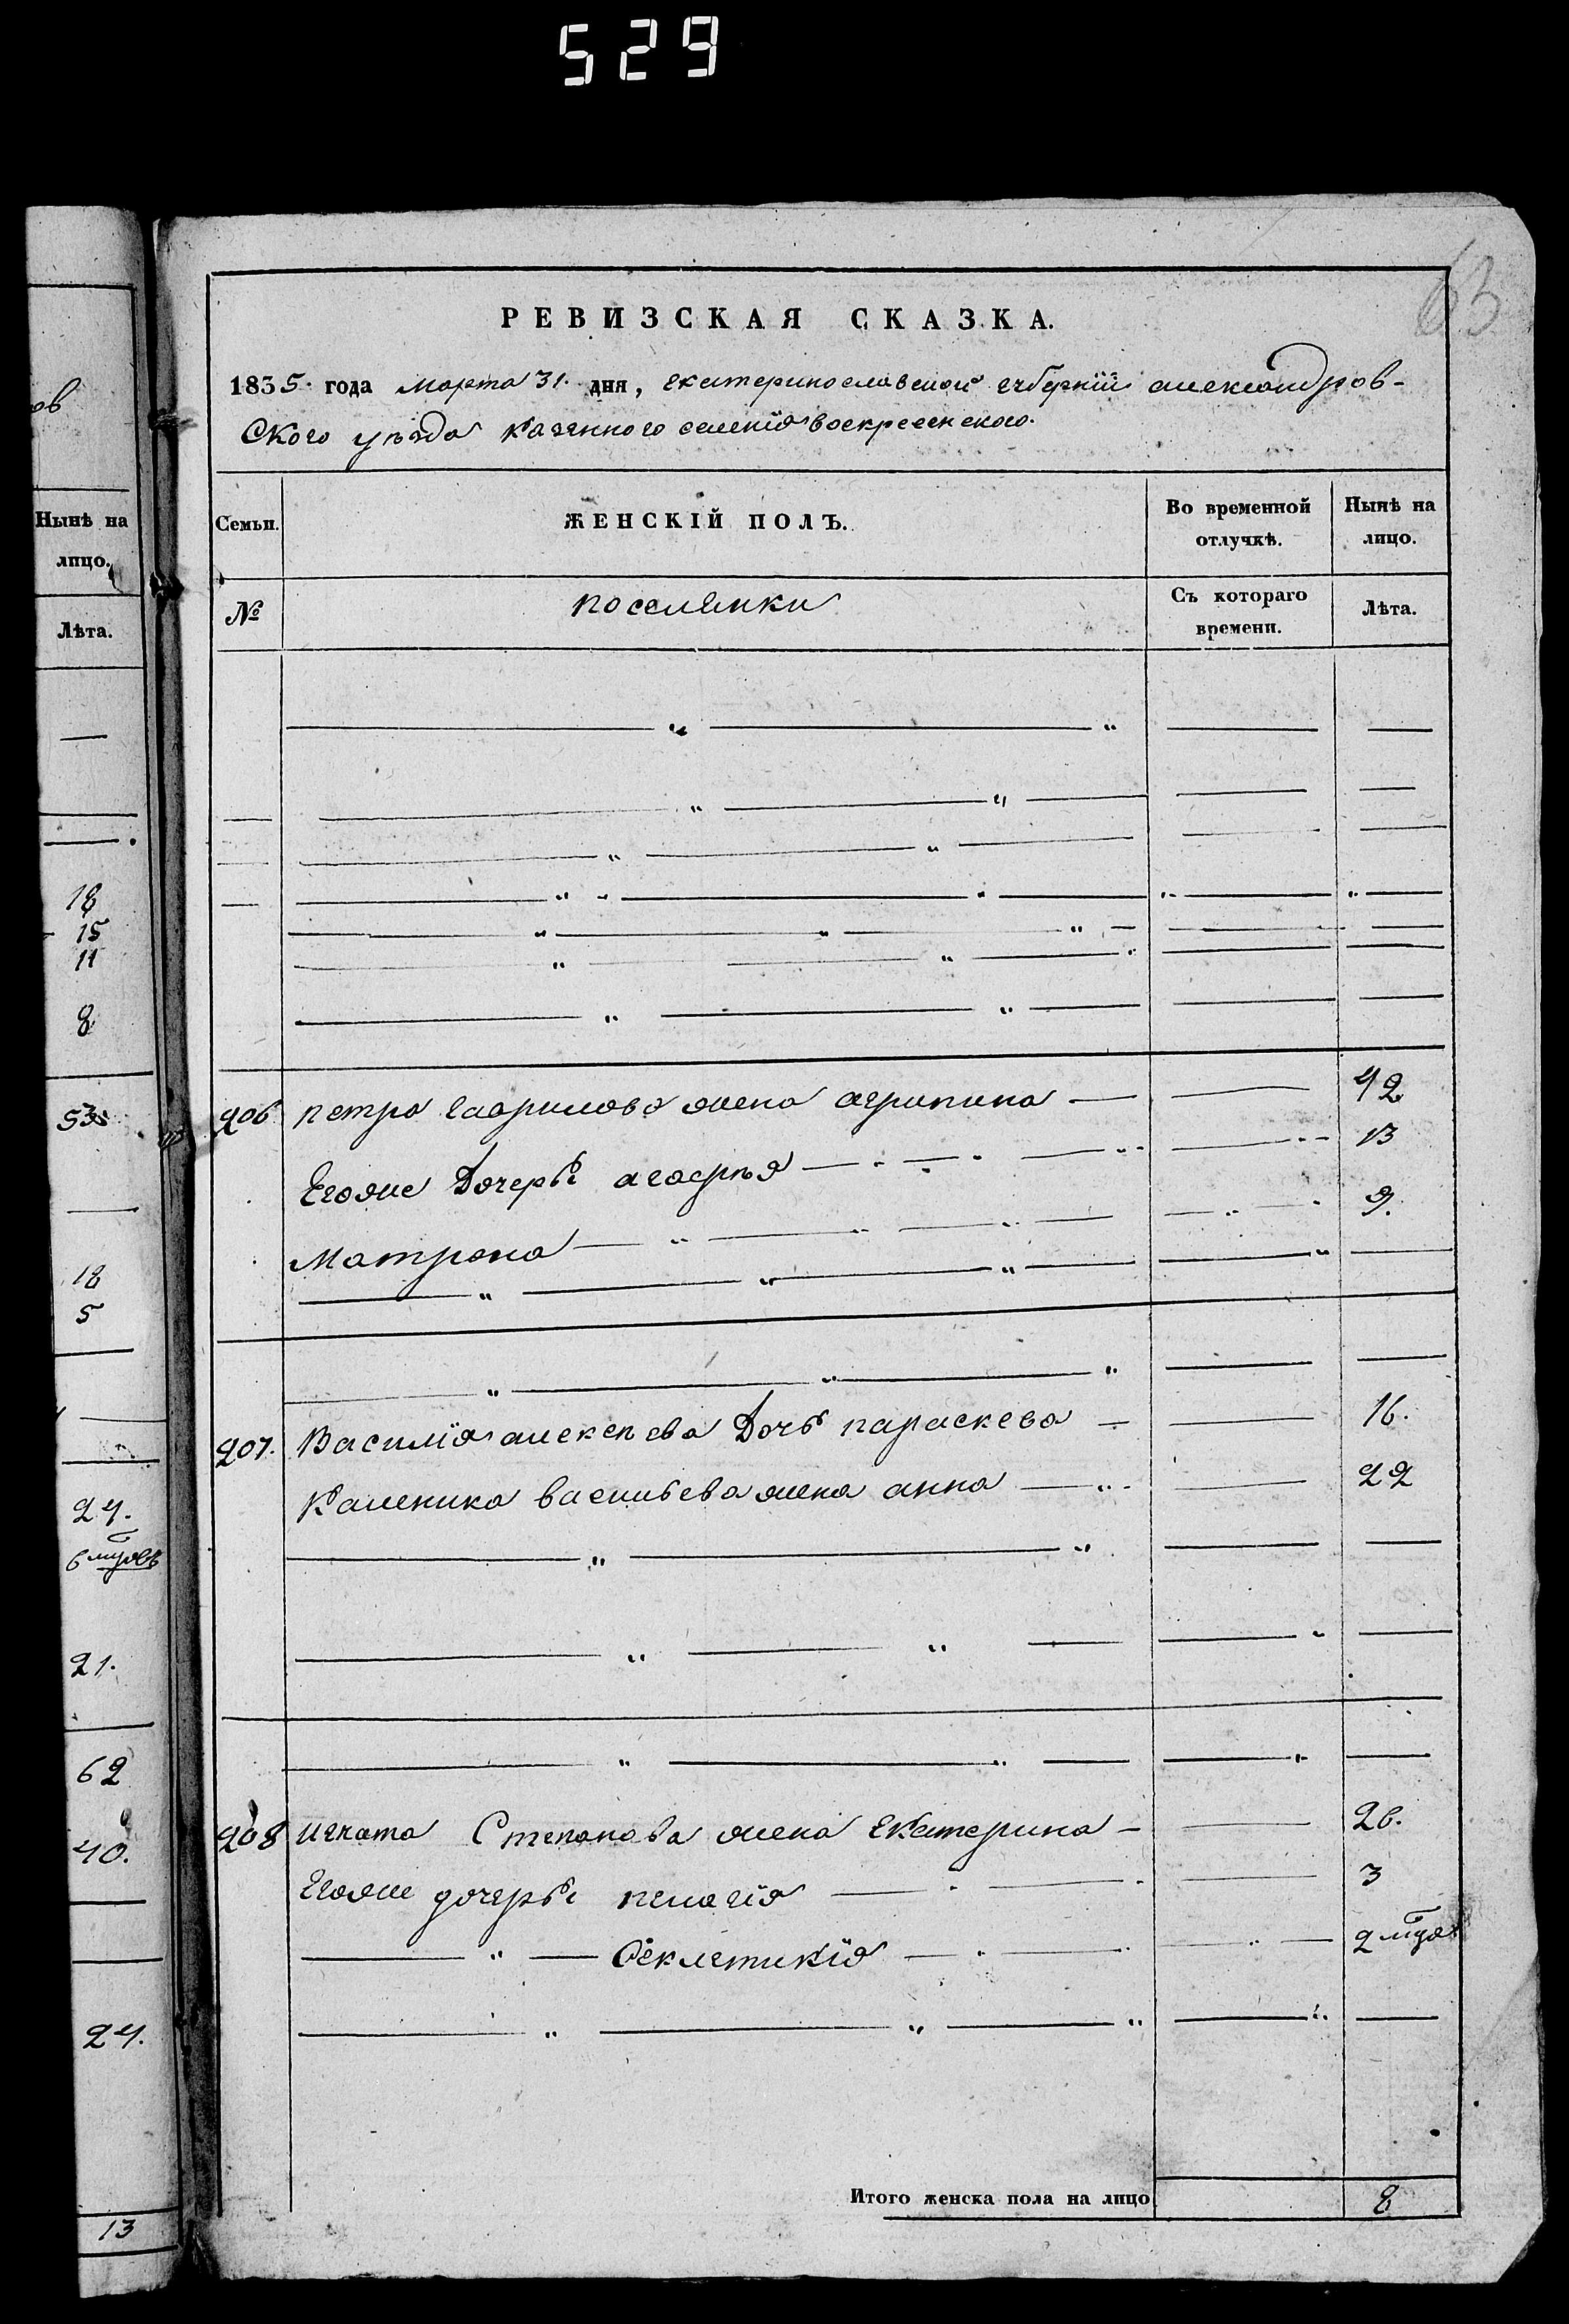 529
63
РЕВИЗСКАЯ СКАЗКА.
1835. года марта 31. дня, екатеринославской губернїи александров-
ского уѣзда казенного селенїя воскресенского.
Семьи.
ЖЕНСКІЙ ПОЛЪ.
Во временной отлучкѣ.
Нынѣ на лицо.
№
поселянки
Съ котораго времени.
Лѣта.
206 петра гаврилова жена агрипина — — 42
Егоже дочери агафья — — 13
матрона — — 9.
207. Василїя алексѣева дочь параскева — — 16.
Каленика васильева жена анна — — 22
208 игната Степанова жена Екатерина — — 26.
Егоже дочери пелагїя — — 3
— " — Феклетикїя — — 2 мца
Итого женска пола на лицо 8
ов
Нынѣ на
лицо.
Лѣта.
18
15
11
8
53
18
5
24.
6 мцовъ
21.
62
40.
24.
13